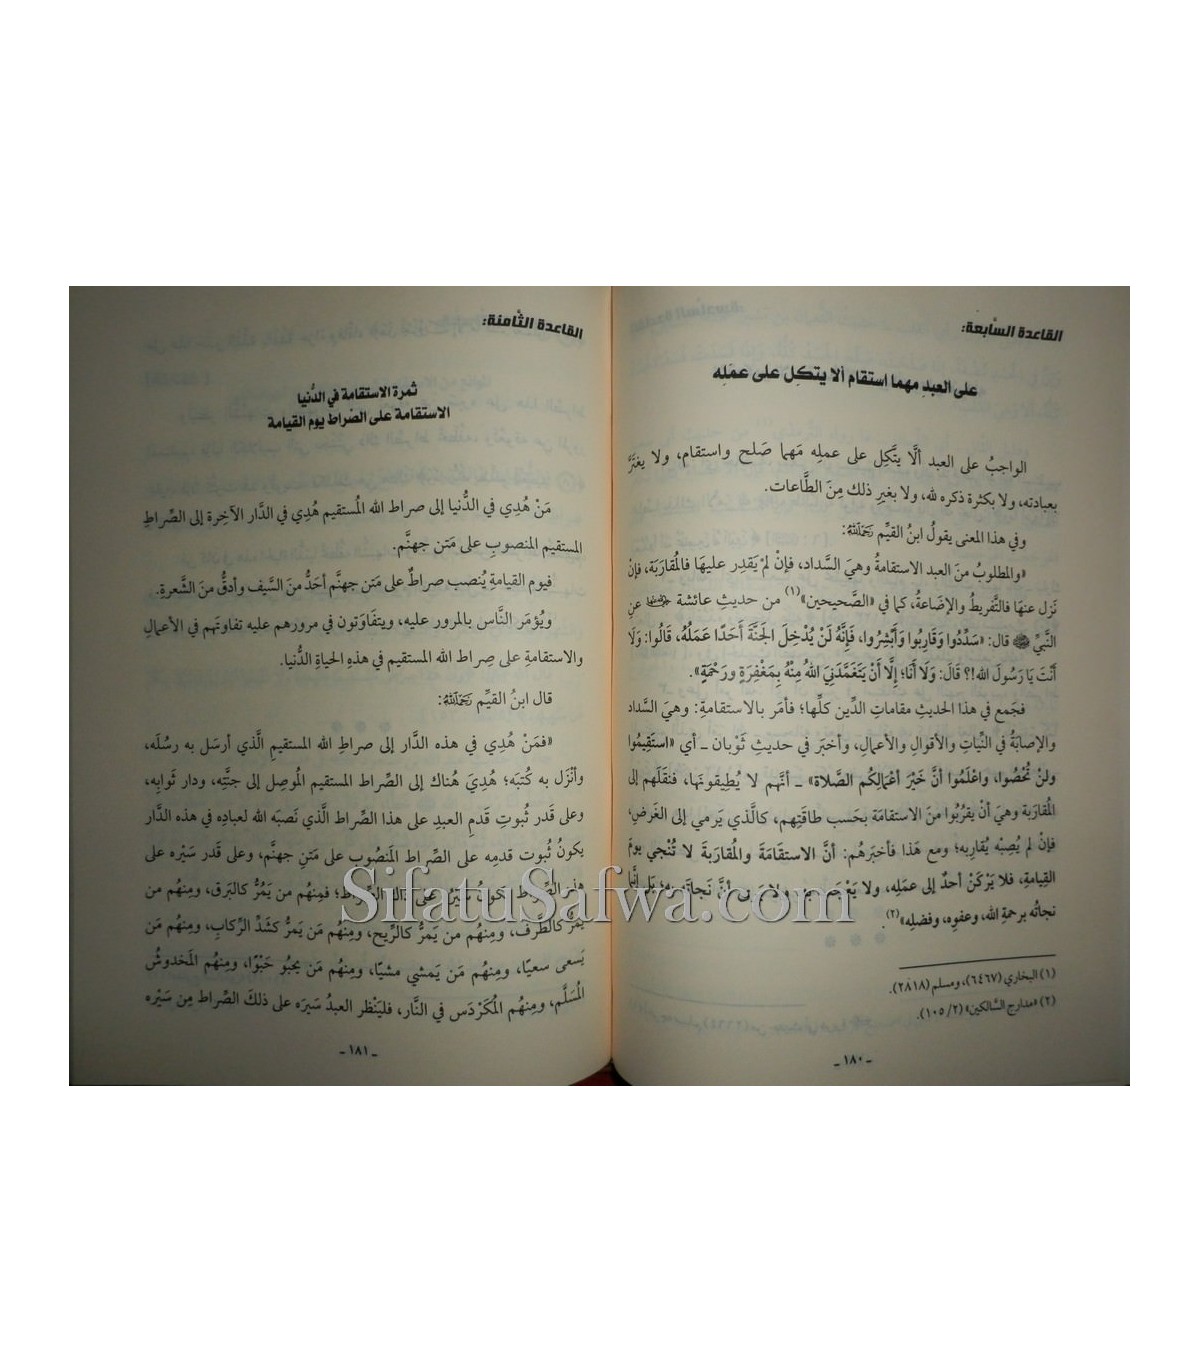 القاعدة السَّابعة:
على العبدِ مهما استقام ألا يتكِل على عمَلِه
الواجبُ على العبد ألَّا يتَّكِل على عملِه مَهما صَلح واستقام، ولا يغترَّ
بعبادته، ولا بكثرة ذكره لله، ولا بغيرِ ذلك مِنَ الطَّاعات.
وفي هذا المعنى يقولُ ابنُ القيِّم رَحِمَهُ اللهُ:
«والمطلوبُ منَ العبد الاستقامةُ وهيَ السَّداد، فإنْ لمْ يَقدِر عليهَا فالمُقارَبَة، فإنْ
نَزَل عنهَا فالتَّفريطُ والإضَاعةُ، كما في «الصَّحيحين»(١) من حديثِ عائشة رضي الله عنها عنِ
النَّبيِّ ﷺ قال: «سَدِّدُوا وَقَارِبُوا وَأَبْشِرُوا، فَإِنَّهُ لَنْ يُدْخِلَ الجَنَّةَ أَحَدًا عَمَلُهُ، قَالُوا: وَلَا
أَنْتَ يَا رَسُولَ الله!؟ قَالَ: وَلَا أَنَا؛ إِلَّا أَنْ يَتَغَمَّدَنِيَ اللهُ مِنْهُ بِمَغْفِرَةٍ ورَحْمَةٍ».
فجَمع في هذا الحديثِ مقاماتِ الدِّين كلِّها؛ فأمَر بالاستقامةِ: وهيَ السَّداد
والإصابةُ في النِّيات والأقوالِ والأعمالِ، وأخبَر في حديثِ ثَوْبان ـ أي «استَقِيمُوا
ولنْ تُحْصُوا، واعْلَمُوا أنَّ خَيْرَ أعْمَالِكُم الصَّلاة» ـ أنَّهم لا يُطِيقونهَا، فنقَلَهم إلى
المُقارَبة وهيَ أنْ يقرُبُوا منَ الاستقامَة بحَسب طاقَتِهم، كالَّذي يَرمي إلى الغَرضِ،
فإن لم يُصِبْه يُقارِبه؛ ومع هَذا فأخبَرَهُم: أنَّ الاستقَامَةَ والمُقارَبَةَ لا تُنْجي يومَ
القِيامةِ، فلا يَرْكَنْ أحدٌ إلى عمَلِه، ولا يَعْجَب به، ولا يرى أنَّ نَجاتَه به؛ بَل إنَّما
نجاتُه برحمةِ الله، وعفوِه، وفضلِه»(٢).
(١) البخاري (٦٤٦٧)، ومسلم (٢٨١٨).
(٢) «مدارج السَّالكين» (٢/ ١٠٥).
ـ ١٨٠ ـ
القاعدة الثَّامنة:
ثمرة الاستقامة في الدُّنيا
الاستقامة على الصِّراط يوم القيامة
مَنْ هُدِي في الدُّنيا إلى صراط الله المُستقيم هُدِي في الدَّار الآخِرة إلى الصِّراطِ
المستقيم المنصوبِ على مَتن جهنَّم.
فيوم القيامةِ يُنصب صراطٌ على مَتنِ جهنَّم أحَدُّ منَ السَّيف وأدقُّ منَ الشَّعرةِ.
ويُؤمَر النَّاس بالمرور عليه، ويتفَاوَتون في مرورهم عليه تفاوتَهم في الأعمالِ
والاستقامةِ على صِراط الله المستقيم في هذهِ الحياةِ الدُّنيا.
قال ابنُ القيِّم رَحِمَهُ اللهُ:
«فمَنْ هُدِي في هذه الدَّار إلى صراطِ الله المستقيمِ الَّذي أرسَل به رسُلَه،
وأنْزَل به كُتبَه؛ هُدِيَ هُناك إلى الصِّراط المستقيم المُوصِل إلى جنَّتِه، ودار ثَوابِه،
وعلى قَدر ثُبوتِ قدَمِ العبدِ على هذا الصِّراط الَّذي نَصبَه الله لعبادِه في هذه الدَّار
يكونُ ثُبوت قدمِه على الصِّراط المَنصُوبِ على مَتنِ جهنَّم، وعلى قَدر سَيْره على
هذه الصِّراط يكونُ سَيْرُه على ذاك الصِّراط؛ فمِنهُم من يَمُرُّ كالبَرق، ومِنهُم من
يمُرُّ كالطَّرف، ومِنهُم من يَمرُّ كالرِّيح، ومِنهُم مَن يَمرُّ كشَدِّ الرِّكابِ، ومِنهُم مَن
يَسعى سعيًا، ومِنهُم مَن يَمشي مشيًا، ومِنهُم مَن يحبُو حَبْوًا، ومِنهُم المَخدوشُ
المُسَلَّم، ومِنهُم المُكَرْدَس في النَّار، فليَنْظر العبدُ سَيرَه على ذلكَ الصِّراط مِن سَيْره
ـ ١٨١ ـ
SifatuSafwa.com